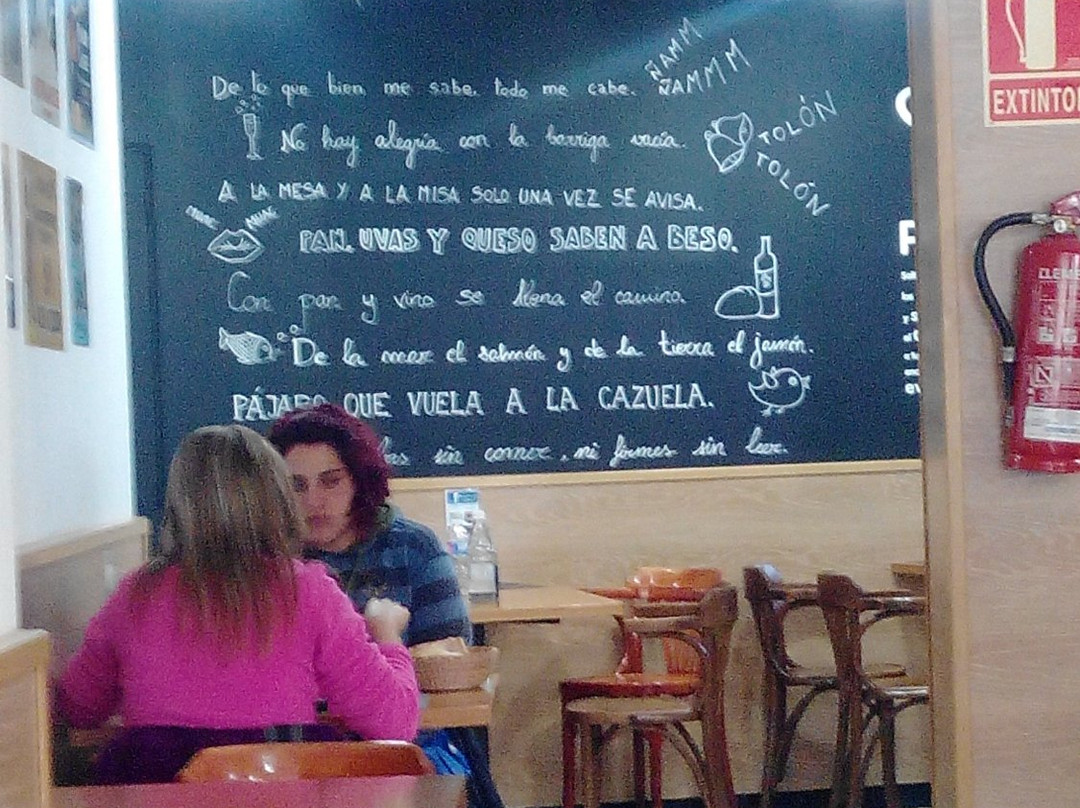 De lo que bien me sabe. todo me cabe.
ÑAMM
ÑAMMM
No hay alegría con la barriga vacía.
TOLÓN
TOLÓN
A LA MESA Y A LA MISA SOLO UNA VEZ SE AVISA.
MUAC MUAC
PAN. UVAS Y QUESO SABEN A BESO.
Con pan y vino se llena el camino.
De la mar el salmón y de la tierra el jamón.
PÁJARO QUE VUELA A LA CAZUELA.
sin comer, ni firmes sin leer.
EXTINTOR